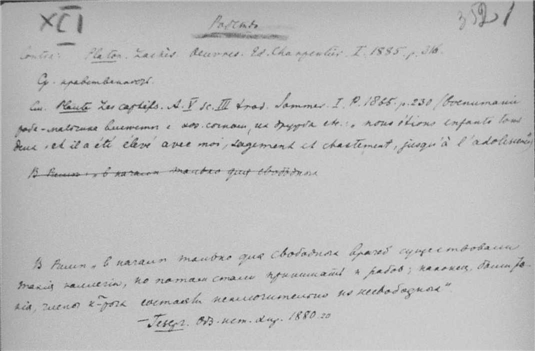 XCI
352
Contra: Platon. Lachès. Oeuvres. Ed. Charpentier. I. 1885. p. 316.
См. Plaute Les captifs. A. V sc. III trad. Sommer. I. P. 1865. p. 230 (Воспитание
раба-мальчика вместе с хоз. сыном, их дружба etc.: „nous étions enfants tous
deux et il a été élevé avec moi, sagement et chastement, jusqu'à l'adolescence"
В Риме, в начале только для свободных
В Риме, в начале только для свободных врачей существовали
такие коллегии, но потом стали принимать и рабов; наконец, были
члены к-рых состояли исключительно из несвободных"
1880